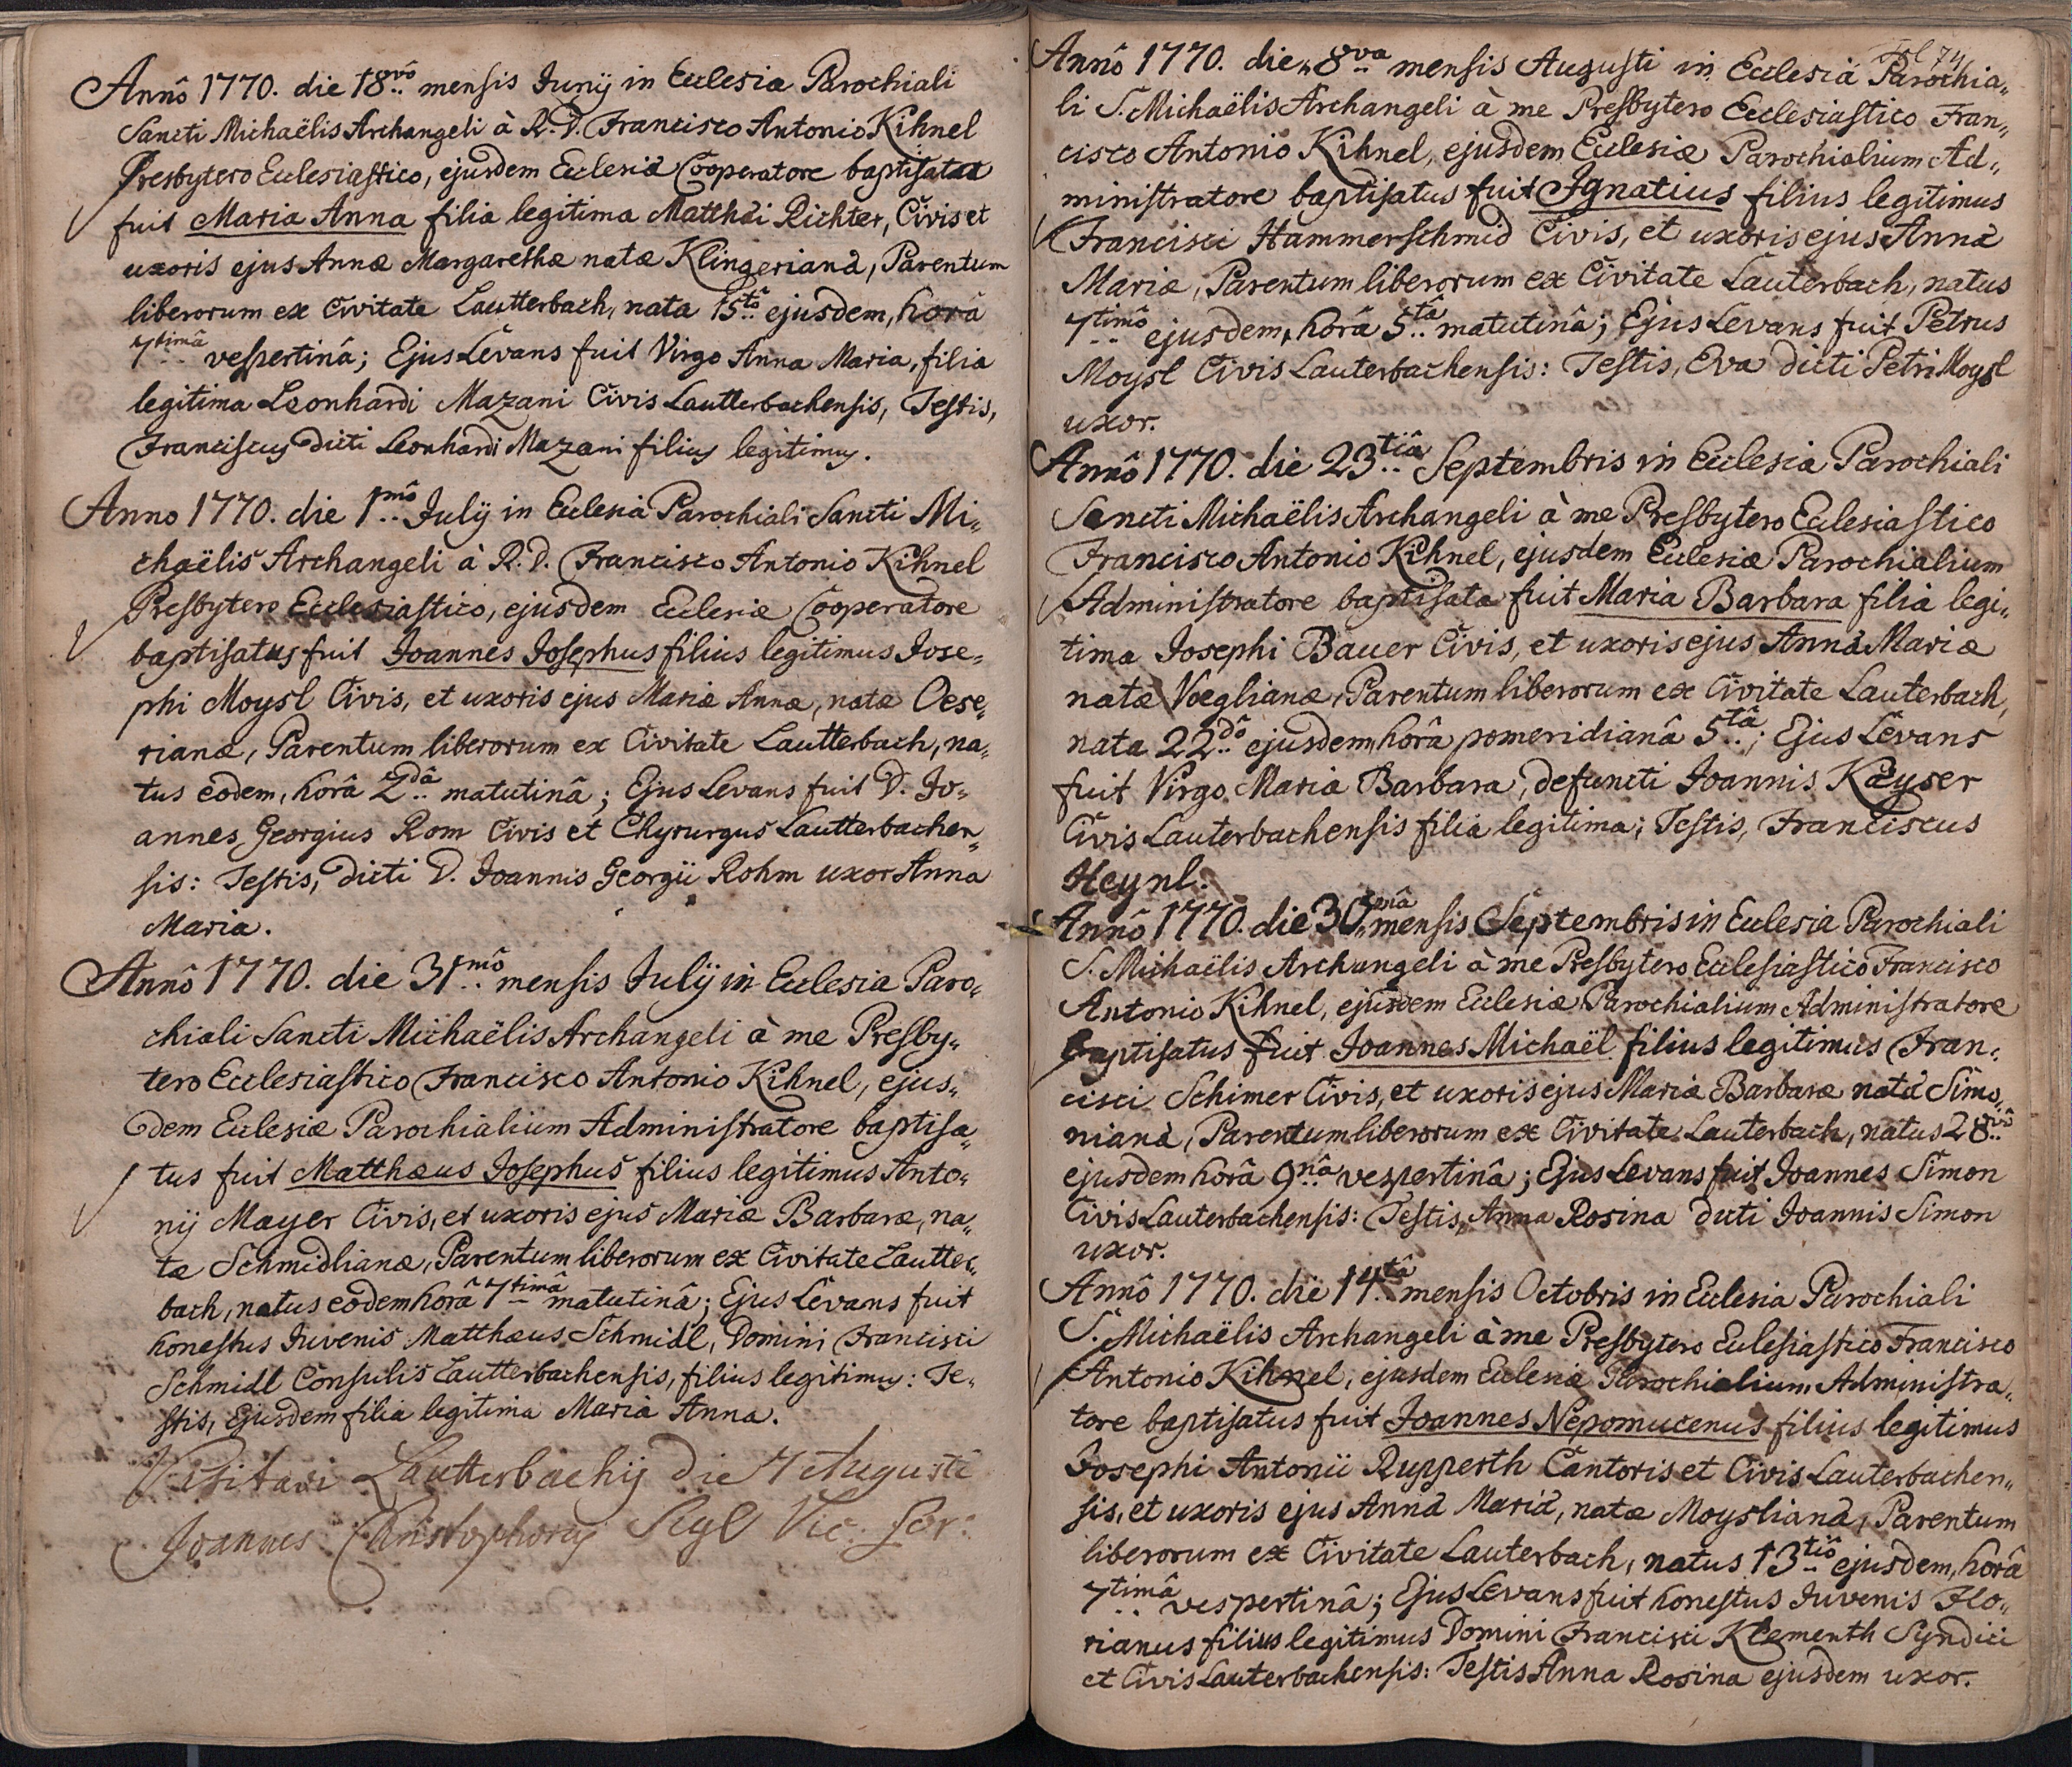 Annô 1770. die 18vô mensis Junÿ in Ecclesia Parochiali
Sancti Michaëlis Archangeli à R. D. Francisco Antonio Kihnel
Presbytero Ecclesiastico, ejusdem Ecclesiæ Cooperatore baptisata
fuit Maria Anna filia legitima Matthæi Richter, Civis et
uxoris ejus Annæ Margarethæ natæ Klingerianæ, Parentum
liberorum ex Civitate Lautterbach, nata 15tô ejusdem, horâ
7timâ vespertinâ; Ejus Levans fuit Virgo Anna Maria, filia
legitima Leonhardi Mazani Civis Lautterbachensis, Testis,
Franciscus dicti Leonhardi Mazani filius legitimus.
Anno 1770. die 1mô Julÿ in Ecclesia Parochiali Sancti Mi-
chaëlis Archangeli à R. D. Francisco Antonio Kihnel
Presbytero Ecclesiastico, ejusdem Ecclesiæ Cooperatore
baptisatus fuit Joannes Josephus filius legitimus Jose-
phi Moysl Civis, et uxoris ejus Mariæ Annæ, natæ Oese-
rianæ, Parentum liberorum ex Civitate Lautterbach, na-
tus eodem, horâ 2dâ matutinâ; Ejus Levans fuit D. Jo-
annes Georgius Rom Civis et Chyrurgus Lautterbachen-
sis: Testis, dicti D. Joannis Georgii Rohm uxor Anna
Maria.
Annô 1770. die 31mô mensis Julÿ in Ecclesia Paro-
chiali Sancti Michaëlis Archangeli à me Presby-
tero Ecclesiastico Francisco Antonio Kihnel, ejus-
dem Ecclesiæ Parochialium Administratore baptisa-
tus fuit Matthæus Josephus filius legitimus Anto-
nij Mayer Civis, et uxoris ejus Mariæ Barbaræ, na-
tæ Schmidlianæ, Parentum liberorum ex Civitate Lautter-
bach, natus eodem horâ 7timâ matutinâ; Ejus Levans fuit
honestus Juvenis Matthæus Schmidl, Domini Francisci
Schmidl Consulis Lautterbachensis, filius legitimus: Te-
stis, Ejusdem filia legitima Maria Anna.
Visitavi Lautterbachij die 7 Augusti
Joannes Christophorus Sigl Vic: For:
Fol 74
Annô 1770. die 8va mensis Augusti in Ecclesiâ Parochia-
li S. Michaëlis Archangeli à me Presbytero Ecclesiastico Fran-
cisco Antonio Kihnel, ejusdem Ecclesiæ Parochialium Ad-
ministratore baptisatus fuit Ignatius filius legitimus
Francisci Hammerschmid Civis, et uxoris ejus Annæ
Mariæ, Parentum liberorum ex Civitate Lauterbach, natus
7timô ejusdem, horâ 5tâ matutinâ; Ejus Levans fuit Petrus
Moysl Civis Lauterbachensis: Testis, Eva dicti Petri Moysl
uxor.
Annô 1770. die 23tiâ Septembris in Ecclesia Parochiali
Sancti Michaëlis Archangeli à me Presbytero Ecclesiastico
Francisco Antonio Kihnel, ejusdem Ecclesiæ Parochialium
Administratore baptisata fuit Maria Barbara filia legi-
tima Josephi Bauer Civis, et uxoris ejus Annæ Mariæ
natæ Voeglianæ, Parentum liberorum ex Civitate Lauterbach,
nata 22dô ejusdem, horâ pomeridianâ 5tâ; Ejus Levans
fuit Virgo Maria Barbara, defuncti Joannis Kayser
Civis Lauterbachensis filia legitima; Testis, Franciscus
Heynl.
Annô 1770. die 30mâ mensis Septembris in Ecclesia Parochiali
S. Michaëlis Archangeli à me Presbytero Ecclesiastico Francisco
Antonio Kihnel, ejusdem Ecclesiæ Parochialium Administratore
baptisatus fuit Joannes Michaël filius legitimus Fran-
cisci Schimer Civis, et uxoris ejus Mariæ Barbaræ natæ Simo-
nianæ, Parentum liberorum ex Civitate Lauterbach, natus 28vô
ejusdem horâ 9nâ vespertinâ; Ejus Levans fuit Joannes Simon
Civis Lauterbachensis: Testis, Anna Rosina dicti Joannis Simon
uxor.
Annô 1770. die 14tâ mensis Octobris in Ecclesia Parochiali
S. Michaëlis Archangeli à me Presbytero Ecclesiastico Francisco
Antonio Kihnel, ejusdem Ecclesiæ Parochialium Administra-
tore baptisatus fuit Joannes Nepomucenus filius legitimus
Josephi Antonii Rupperth Cantoris et Civis Lauterbachen-
sis, et uxoris ejus Annæ Mariæ, natæ Moyslianæ, Parentum
liberorum ex Civitate Lauterbach, natus 13tiô ejusdem, horâ
7timâ vespertinâ; Ejus Levans fuit honestus Juvenis Flo-
rianus filius legitimus Domini Francisci Klementh Syndici
et Civis Lauterbachensis: Testis Anna Rosina ejusdem uxor.